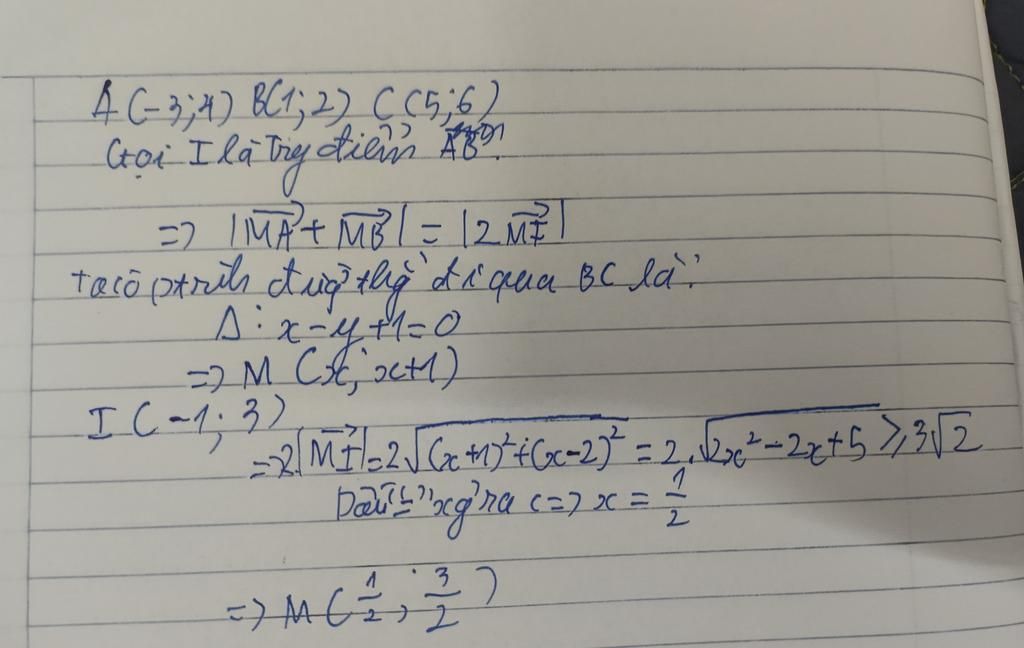 A(-3;4) B(1;2) C(5;6)
Gọi I là Trg điểm AB.
=> |MA + MB| = |2MI|
ta có ptrình đường thg đi qua BC là:
Δ: x-y+1=0
=> M (x; x+1)
I (-1; 3)
=> 2|MI| = 2√((x+1)²+(x-2)²) = 2.√(2x²-2x+5) ≥ 3√2
Dấu "=" xg ra <=> x = 1/2
=> M (1/2; 3/2)